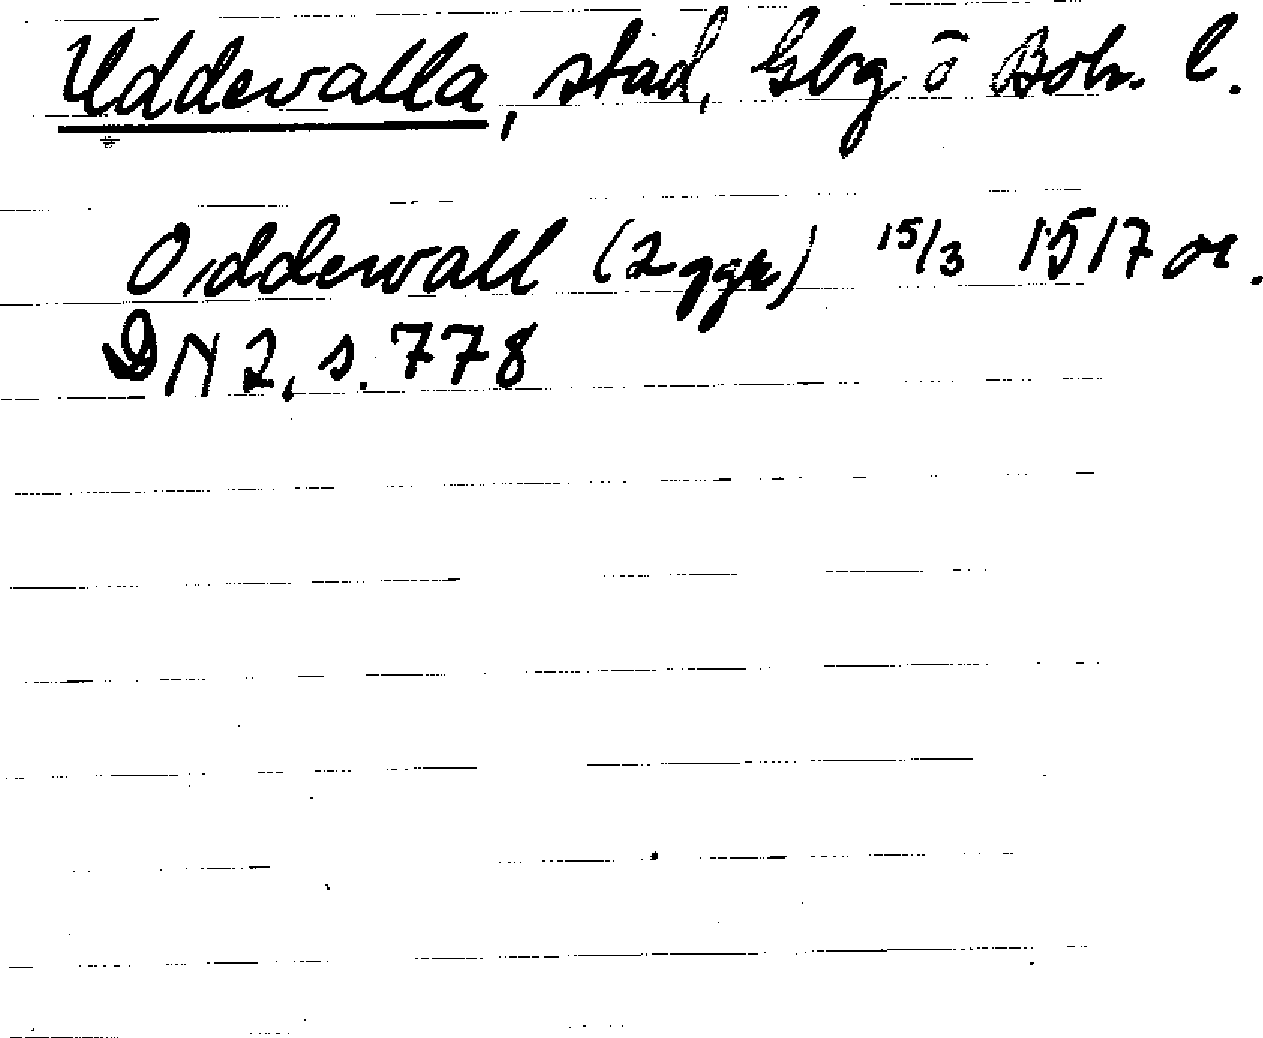 Uddevalla, stad, Gbg o Boh. l.
Oddewall (2 ggr) 15/3 1517 or.
DN 2, s. 778